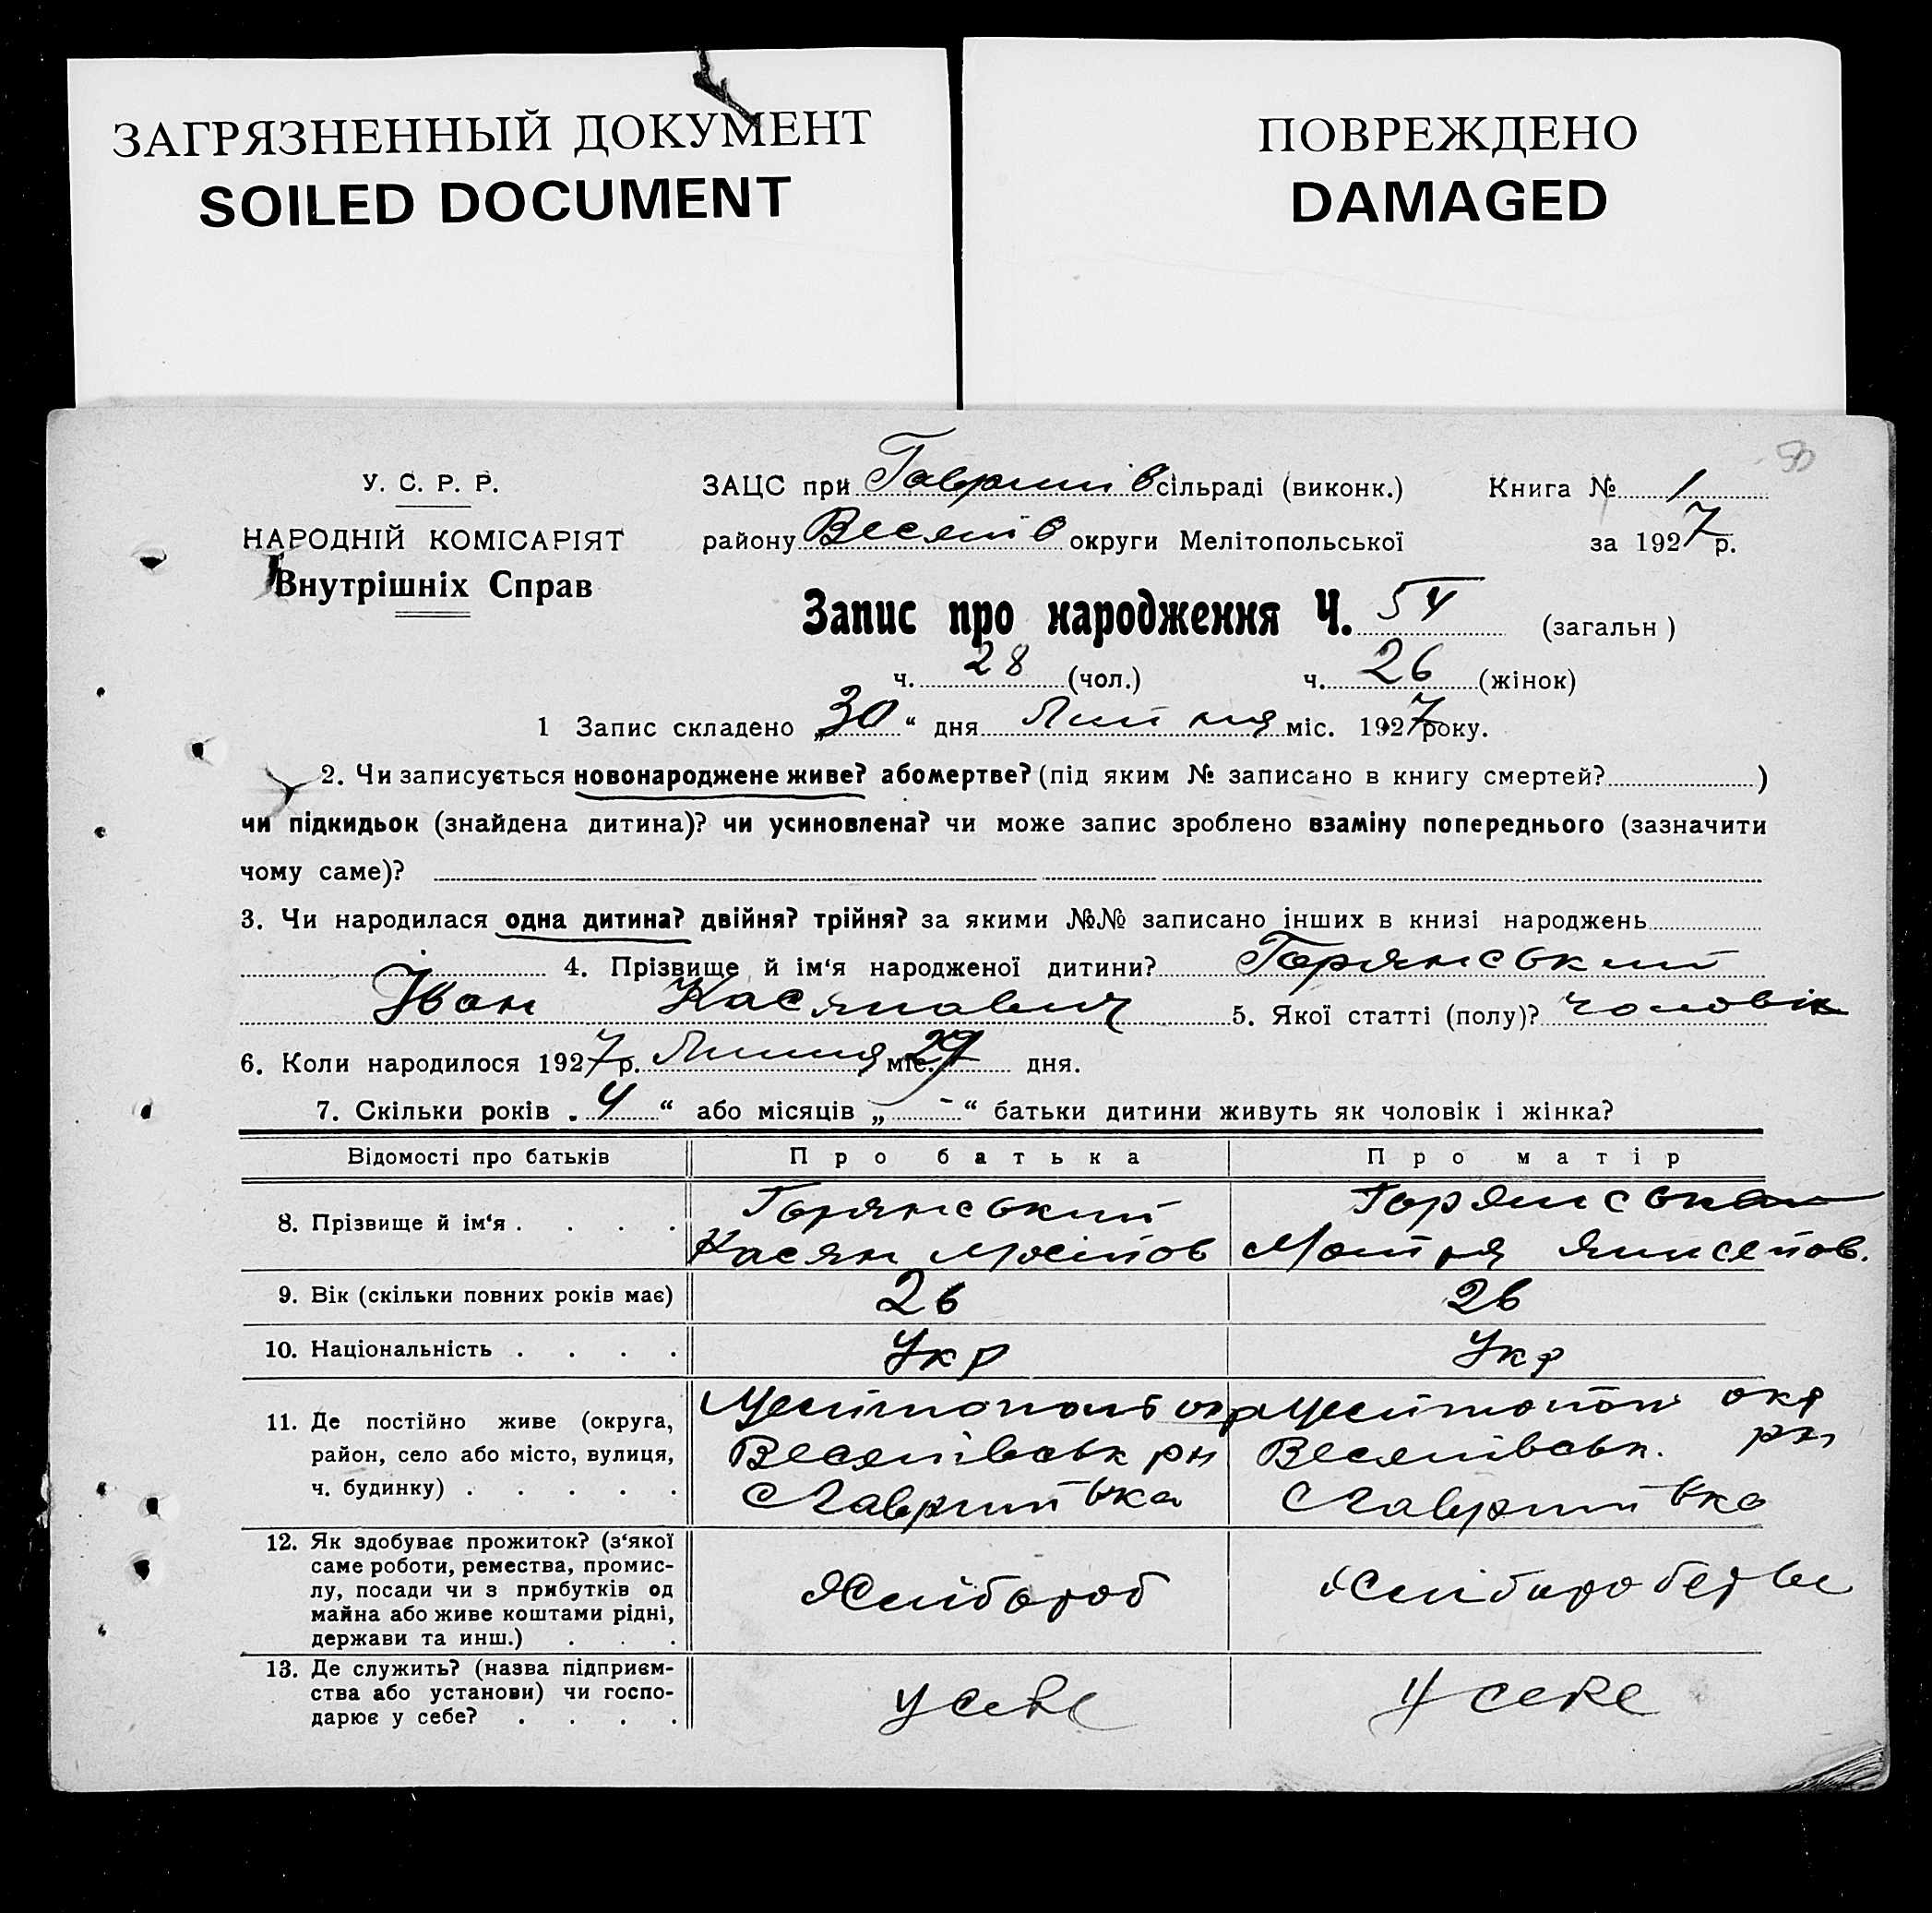 ЗАГРЯЗНЕННЫЙ ДОКУМЕНТ
SOILED DOCUMENT
ПОВРЕЖДЕНО
DAMAGED
50
У. С. Р. Р.
НАРОДНІЙ КОМІСАРІЯТ
Внутрішніх Справ
ЗАЦС при Гаврилів сільраді (виконк.) Книга № 1
району Веселів округи Мелітопольської за 1927 р.
Запис про народження Ч. 54 (загальн)
ч. 28 (чол.) ч. 26 (жінок)
1 Запис складено „30“ дня Липня міс. 1927 року.
2. Чи записується новонароджене живе? або мертве? (під яким № записано в книгу смертей? )
чи підкидьок (знайдена дитина)? чи усиновлена? чи може запис зроблено взаміну попереднього (зазначити
чому саме)?
3. Чи народилася одна дитина? двійня? трійня? за якими №№ записано інших в книзі народжень
4. Прізвище й ім‘я народженої дитини? Горянський
Іван Касянович 5. Якої статті (полу)? чоловік
6. Коли народилося 1927 р. Липня міс. 27 дня.
7. Скільки років „4“ або місяців „-“ батьки дитини живуть як чоловік і жінка?
Відомості про батьків Про батька Про матір
8. Прізвище й ім‘я . . . . Горянський Горянська
Касян Мосійов Мотря
9. Вік (скільки повних років має) 26 26
10. Національність . . . . Укр Укр
11. Де постійно живе (округа, район, село або місто, вулиця, ч. будинку) . . . . .
Мелітополь окр Мелітопол окр
Веселівськ рн Веселівськ. рн
с Гаврилівка с Гаврилівка
12. Як здобуває прожиток? (з‘якої
саме роботи, ремества, промис-
лу, посади чи з прибутків од
майна або живе коштами рідні,
держави та инш.) . . .
Хлібороб Хліборобство
13. Де служить? (назва підприєм-
ства або установи) чи госпо-
дарює у себе? . . . .
у себе у себе